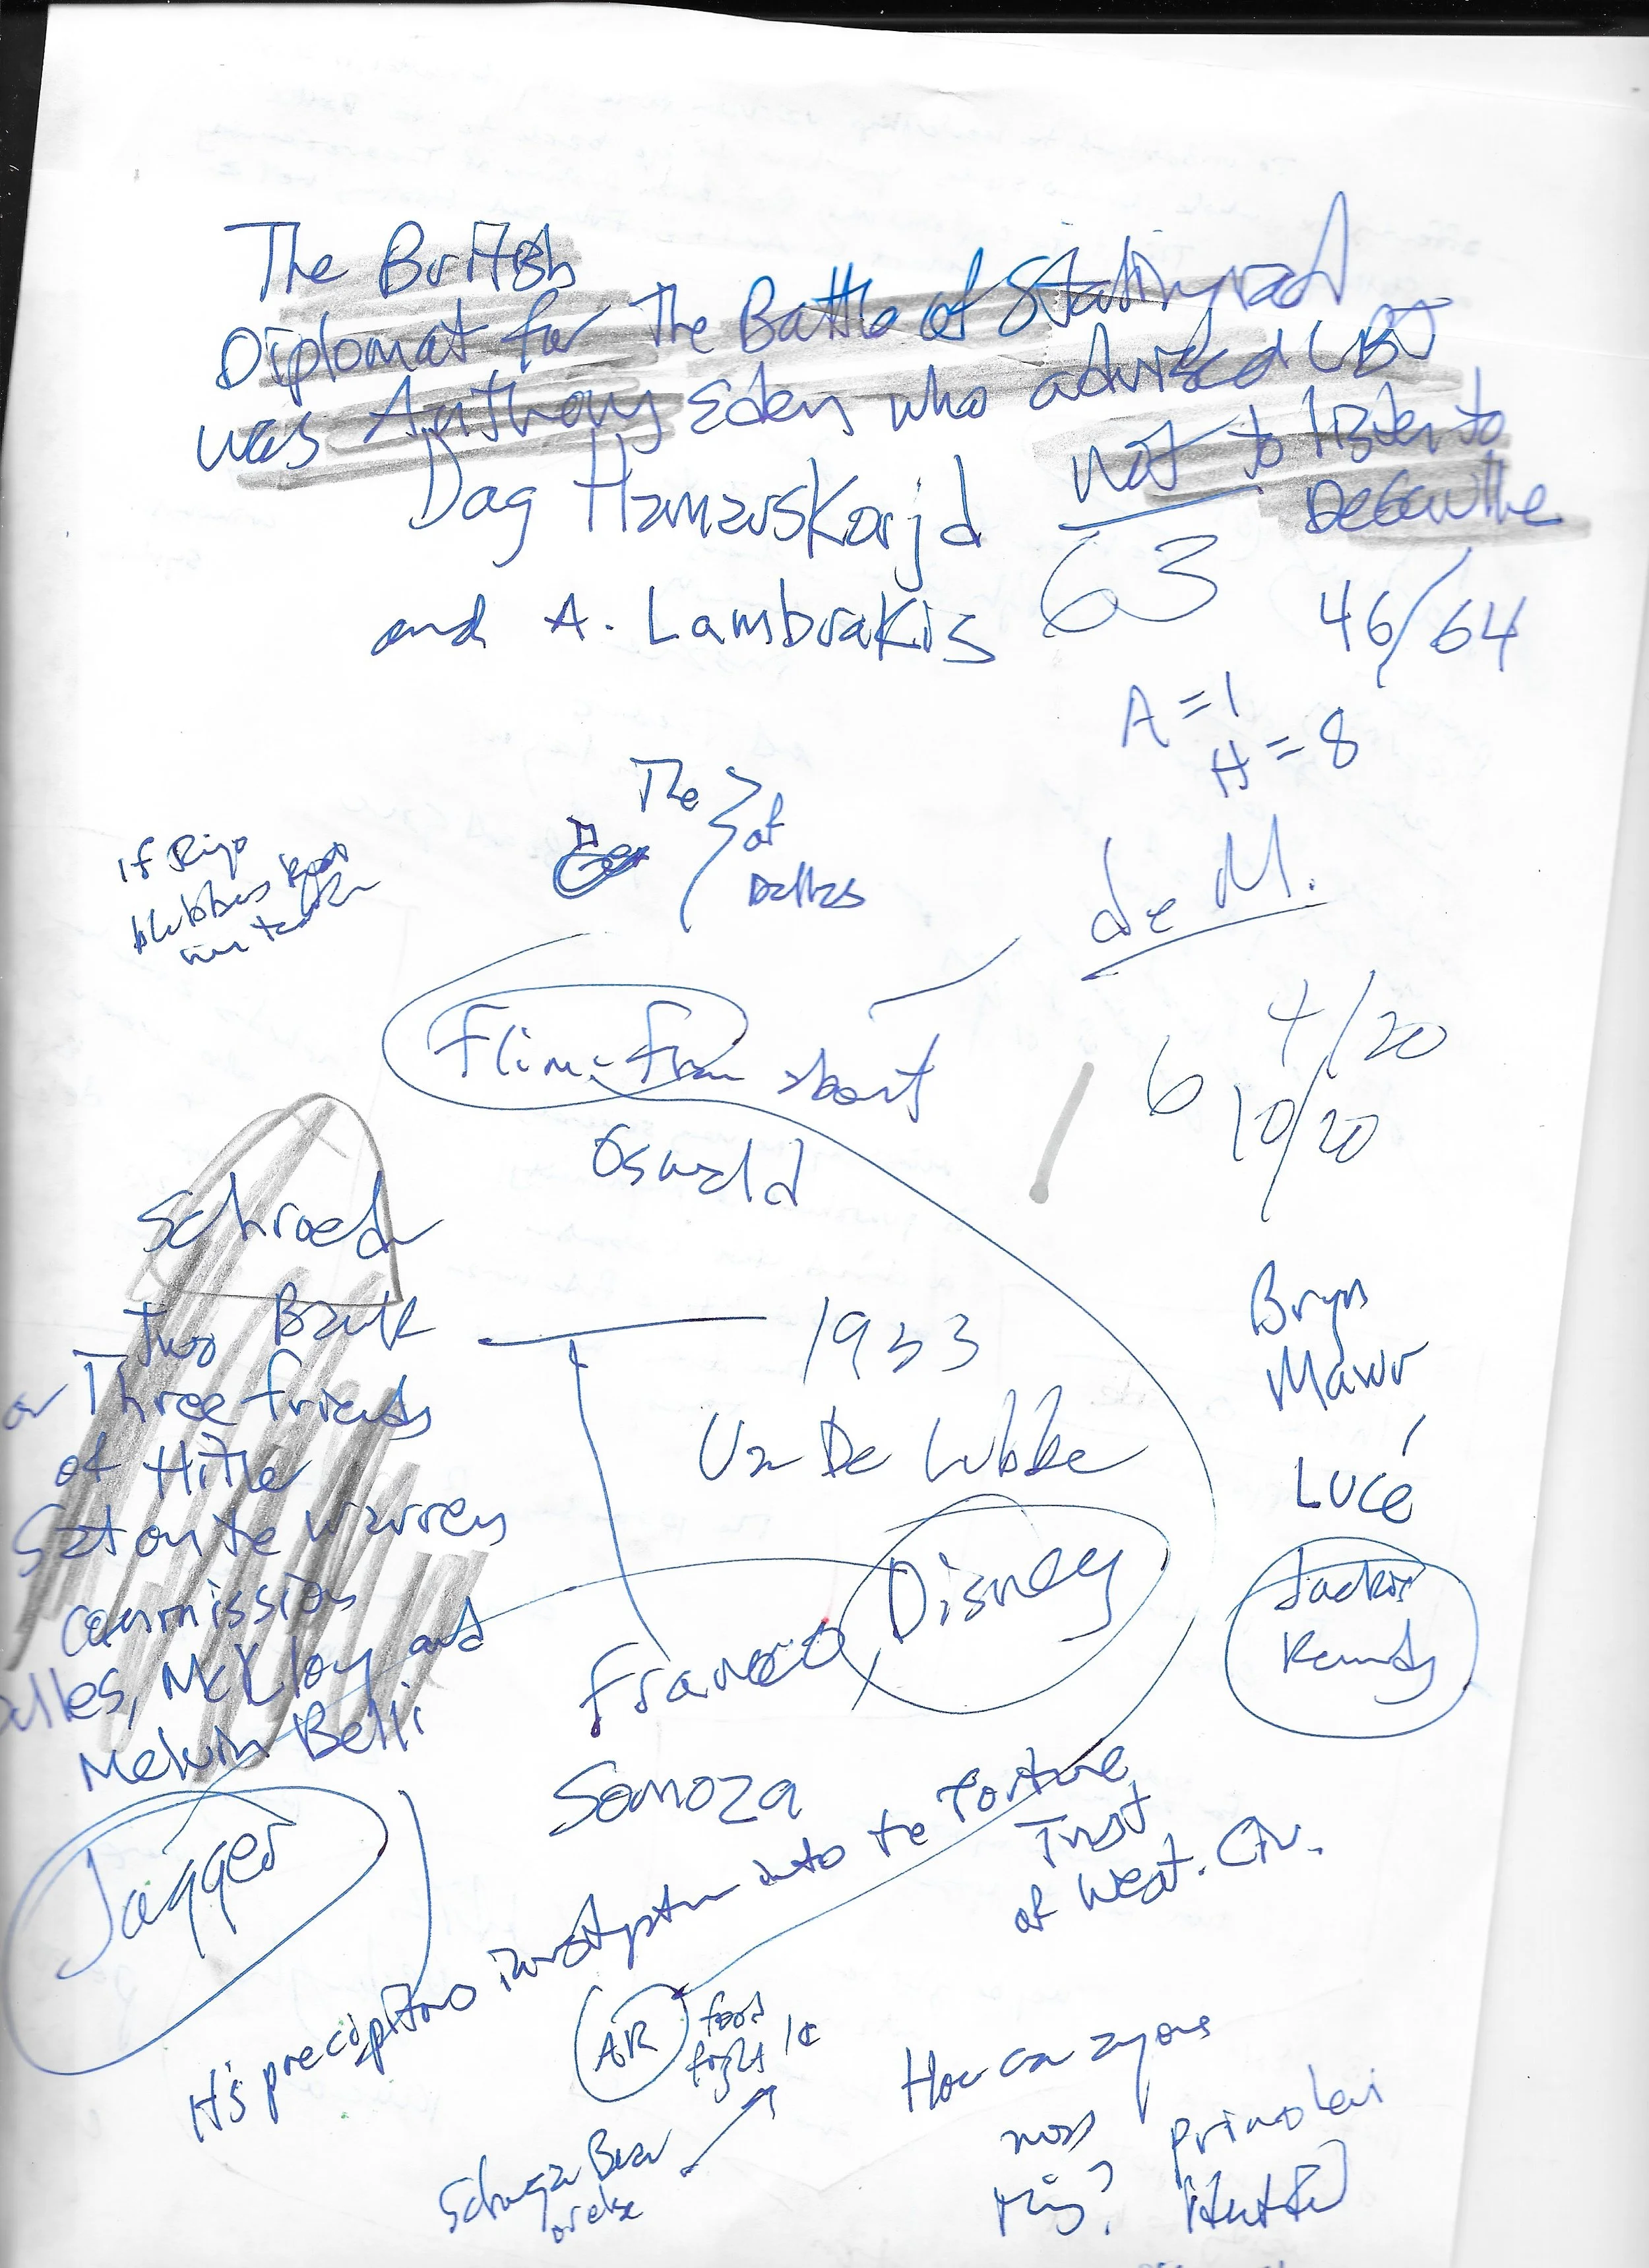 The British
Diplomat for The Battle of Stalingrad
was Anthony Eden who advised LBJ
not to listen to
DeGaulle
Dag Hamarskorjd
63
46/64
and A. Lambrakis
A = 1
H = 8
The
of
Dallas
If Ringo
de M.
Flim-flam
Oswald
4/20
6
10/20
Schroed
Bank
two
or Three friends
of Hitle
Sat on te Warren
commission
Dulles, McCloy and
Melvin Belli
1933
Van De Lubbe
Bryn
Mawr
Lucé
Disney
Jackie
Kennedy
Franco
Somoza
Jagger
H's precipitous investigation into te Torture
Trust
of West. Civ.
AR
food
fight
1¢
How can anyone
miss
this?
primo levi
or else